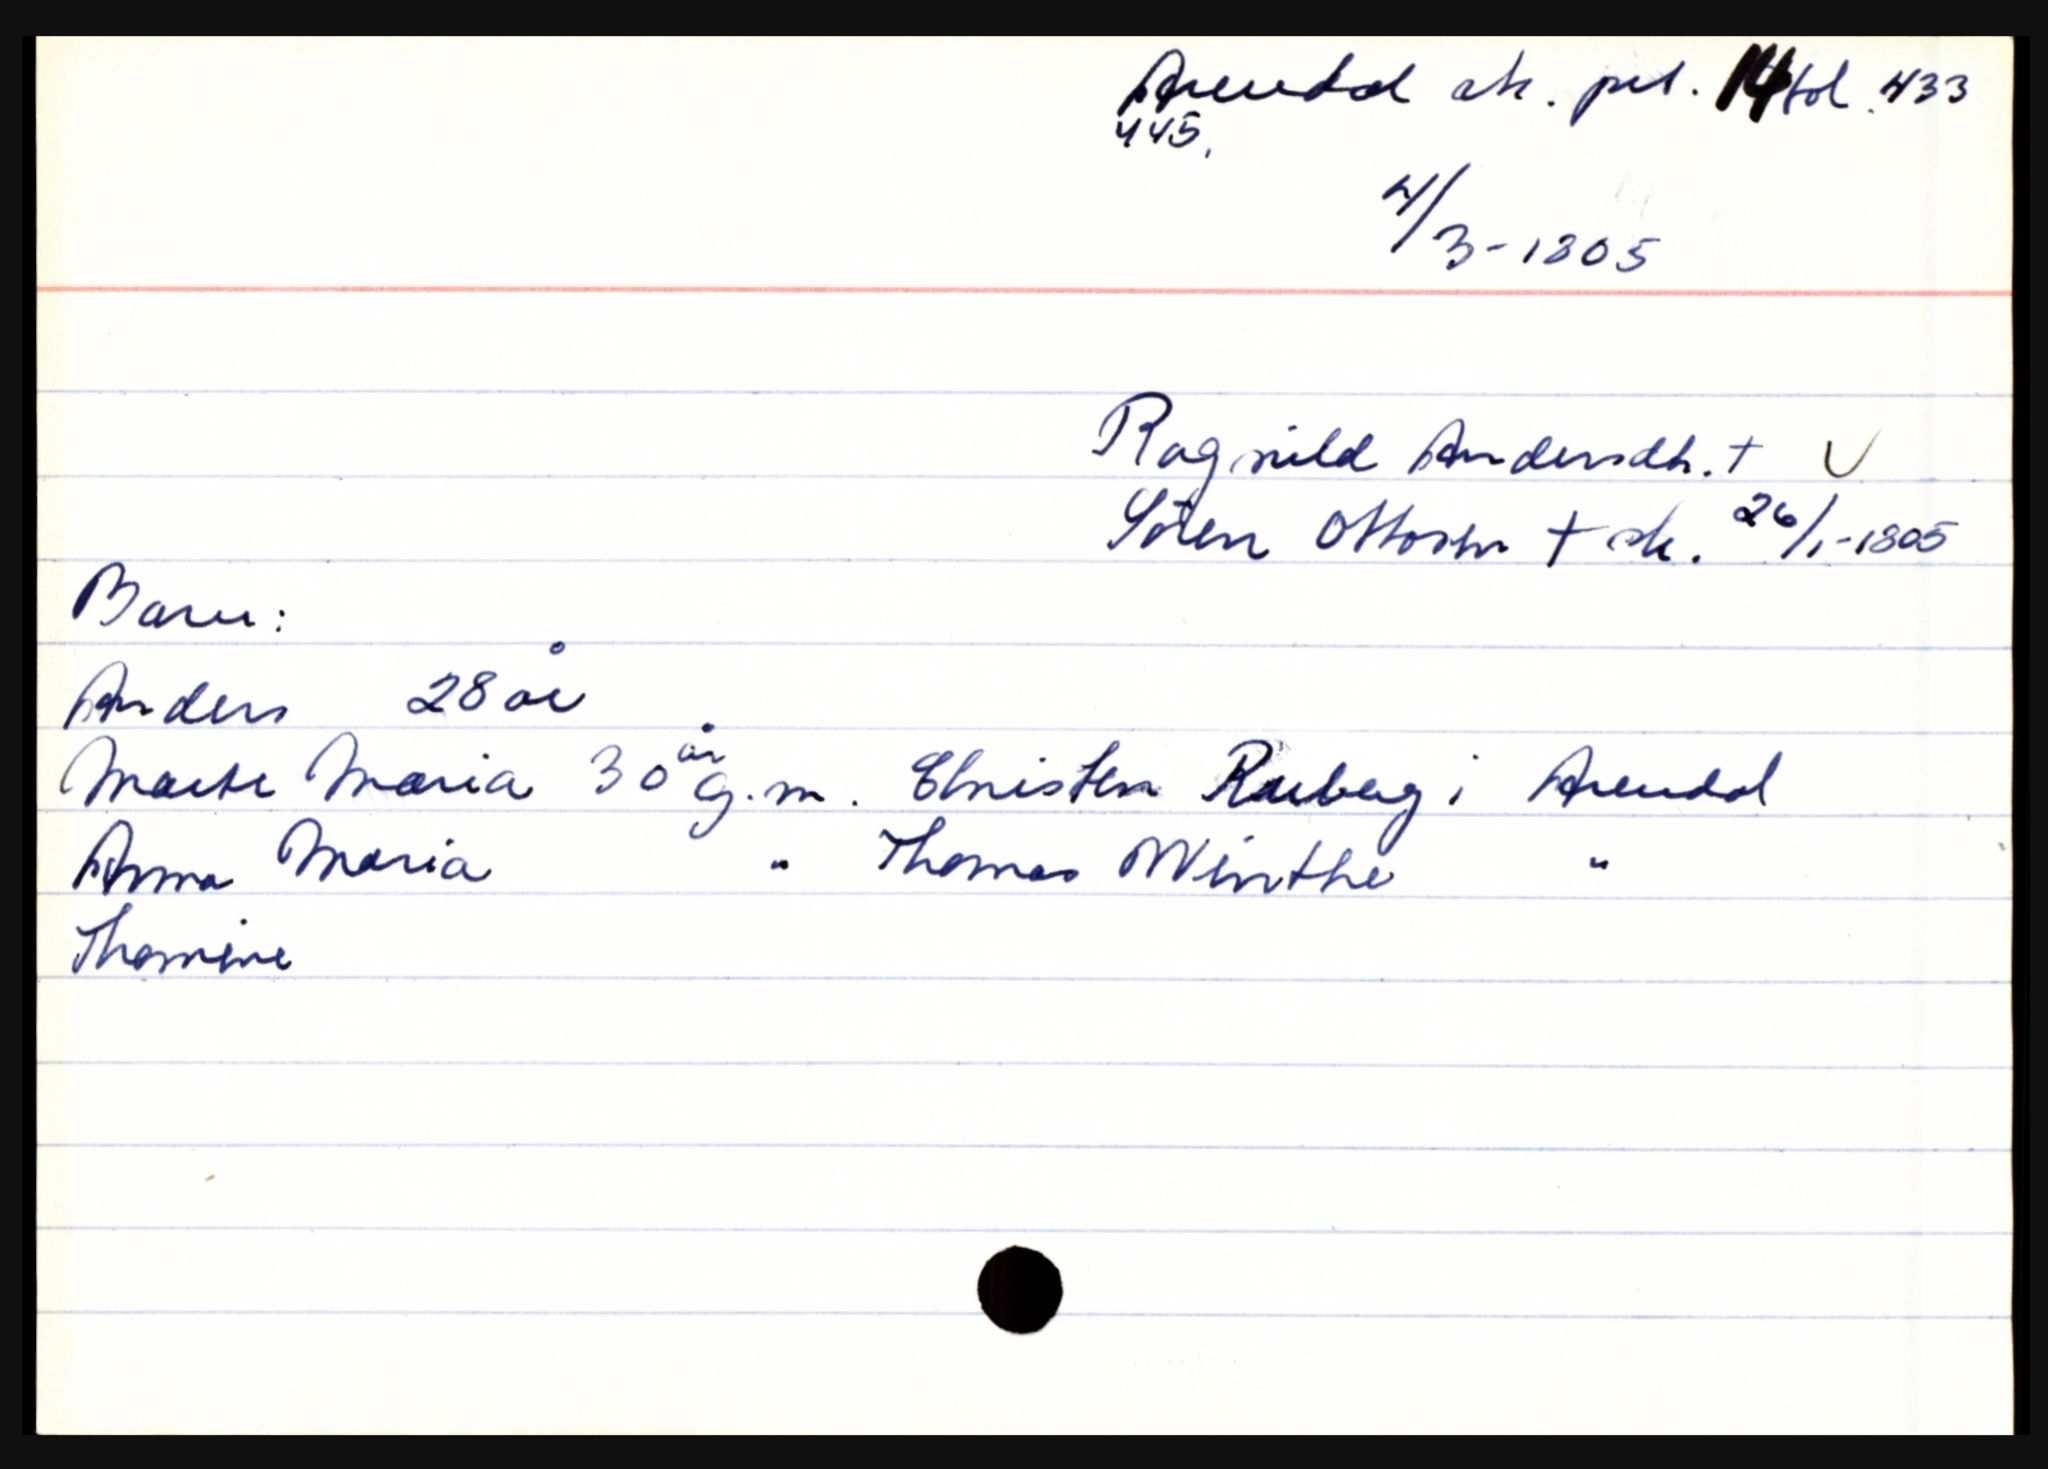 Arendal sk. prt. 14 fol. 433
445.
4/3-1805
Ragnild Andersdh. +
Søren Ottosen + sk. 26/1-1805
Barn:
Anders 28 år
Marte Maria 30 år g.m. Christen Ruberg i Arendal
Anna Maria " Thomas Winthe "
Thomine